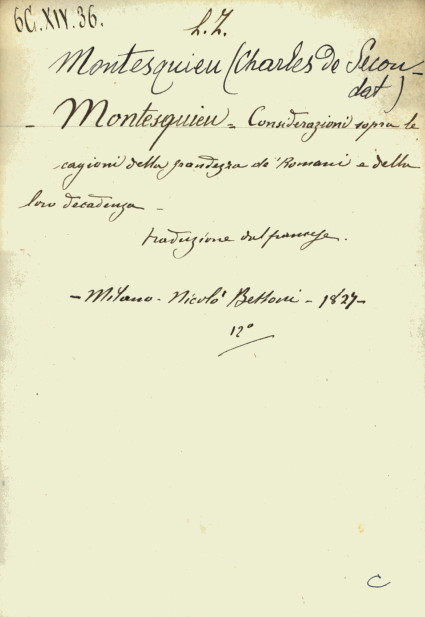 6G.XIV.36.
L.Z.
Montesquieu (Charles de Secon-
dat)
- Montesquieu = Considerazioni sopra le
cagioni della grandezza de' Romani e della
loro decadenza -
traduzione dal francese.
- Milano - Nicolò Bettoni - 1827 -
12°
C